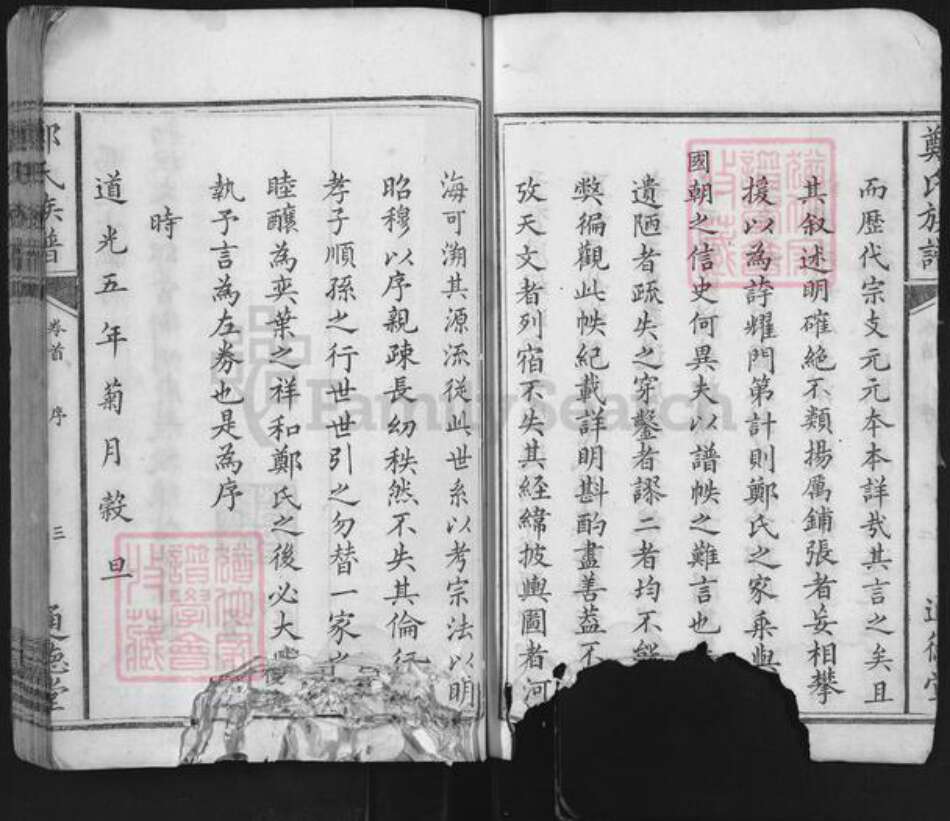 鄭氏族譜
而歷代宗支元元本本詳哉其言之矣且
其叙述明確絶不類揚厲鋪張者妄相攀
援以為誇耀門第計則鄭氏之家乘與
國朝之信史何異夫以譜帙之難言也
遺陋者疏失之穿鑿者謬二者均不
獘徧觀此帙紀載詳明斟酌盡善葢不
攷天文者列宿不失其經緯披輿圖者河
海可溯其源流從此世系以考宗法以明
昭穆以序親疎長幼秩然不失其倫
孝子順孫之行世世引之勿替一家之
睦釀為奕葉之祥和鄭氏之後必大
執予言為左券也是為序
時
道光五年菊月穀旦
氏族譜
卷首 序 三 通德堂
FamilySearch
收藏
譜學會
收藏
譜學會